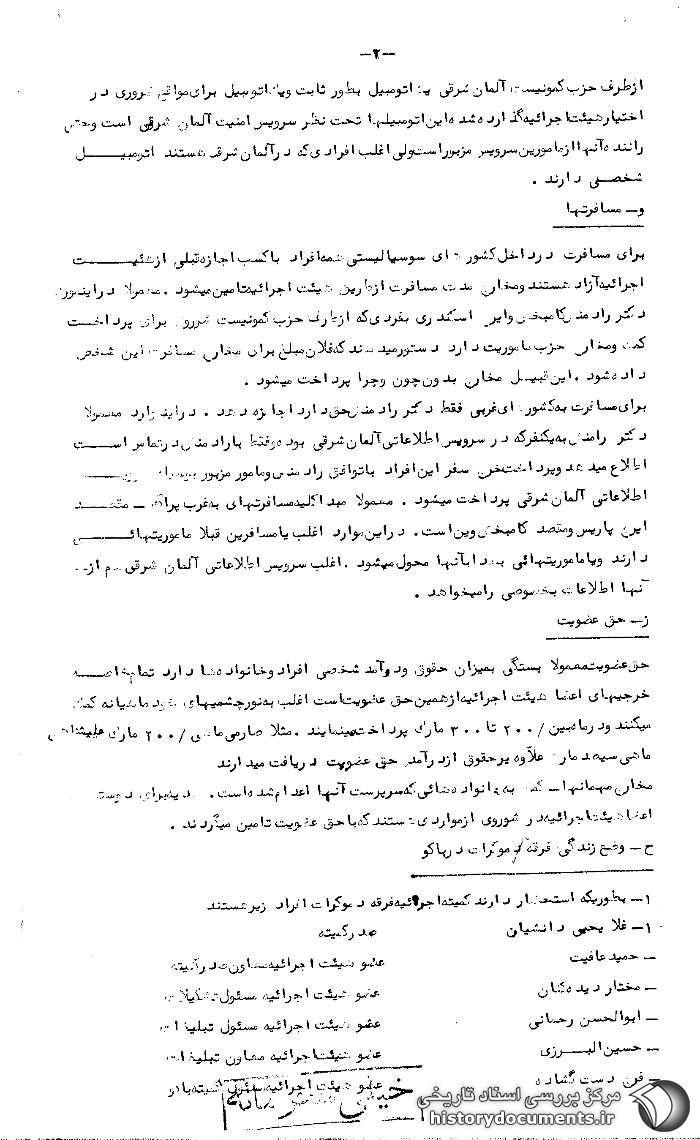 -۲-
ازطرف حزب کمونیست آلمان شرقی یک اتومبیل بطور ثابت ویک اتومبیل برای مواقع ضروری در
اختیار هیئت اجرائیه گذارده شده این اتومبیلها تحت نظر سرویس امنیت آلمان شرقی است وحتی
راننده آنها از مامورین سرویس مزبور است ولی اغلب افرادی که در آلمان شرقی هستند اتومبیل
شخصی دارند .
و- مسافرتها
برای مسافرت درداخل کشورهای سوسیالیستی همه افراد باکسب اجازه قبلی از هیئت
اجرائیه آزاد هستند ومخارج مدت مسافرت ازطریق هیئت اجرائیه تامین میشود . معمولا دراینمورد
دکتر رادمنش کامبخش وایرج اسکندری بفردی که ازطرف حزب کمونیست شوروی برای پرداخت
کمک ومخارج حزب ماموریت دارد دستور میدهند که فلان مبلغ برای مخارج مسافرت این شخص
داده شود . این قبیل مخارج بدون چون وچرا پرداخت میشود .
برای مسافرت به کشورهای غربی فقط دکتر رادمنش حق دارد اجازه دهد . دراینمورد معمولا
دکتر رادمنش به یکنفر که در سرویس اطلاعاتی آلمان شرقی بوده وفقط با رادمنش درتماس است
اطلاع میدهد وپرداخت خرج سفر این افراد باتوافق رادمنش ومامور مزبور بوسیله سرویس
اطلاعاتی آلمان شرقی پرداخت میشود . معمولا مبداء کلیه مسافرتهای به غرب پراگ - مقصد
ایرج پاریس ومقصد کامبخش وین است . دراین موارد اغلب یا مسافرین قبلا ماموریتهائی
دارند ویا ماموریتهائی بعدا بآنها محول میشود . اغلب سرویس اطلاعاتی آلمان شرقی هم از
آنها اطلاعات بخصوصی را میخواهد .
ز- حق عضویت
حق عضویت معمولا بستگی بمیزان حقوق ودرآمد شخصی افراد وخانواده ها دارد تمام خاصه
خرجیهای اعضا هیئت اجرائیه از همین حق عضویت است اغلب به نورچشمیهای خود ماهیانه کمک
میکنند ودر ماه بین /۲۰۰ تا ۳۰۰ مارک پرداخت مینمایند . مثلا صارمی ماهی /۲۰۰ مارک
ماهی سیصد مارک علاوه برحقوق ازدرآمد حق عضویت دریافت میدارند
مخارج مهمانیها - کمک به خانواده هائی که سرپرست آنها اعدام شده است . هدیه برای دوستان
اعضا هیئت اجرائیه در شوروی از مواردی هستند که با حق عضویت تامین میگردند .
ح- وضع زندگی فرقه دموکرات درباکو
۱- بطوریکه استحضار دارند کمیته اجرائیه فرقه دموکرات افراد زیر هستند
۱- غلام یحیی دانشیان صدر کمیته
- حمید عافیت عضو هیئت اجرائیه معاون صدر کمیته
- مختار دیده کنان عضو هیئت اجرائیه مسئول تشکیلات
- ابوالحسن رحمانی عضو هیئت اجرائیه مسئول تبلیغات
- حسین البرزی عضو هیئت اجرائیه معاون تبلیغات
- فرج دست گشاده عضو هیئت اجرائیه مسئول کمیته باکو
خیلی محرمانه
مرکز بررسی اسناد تاریخی
historydocuments.ir